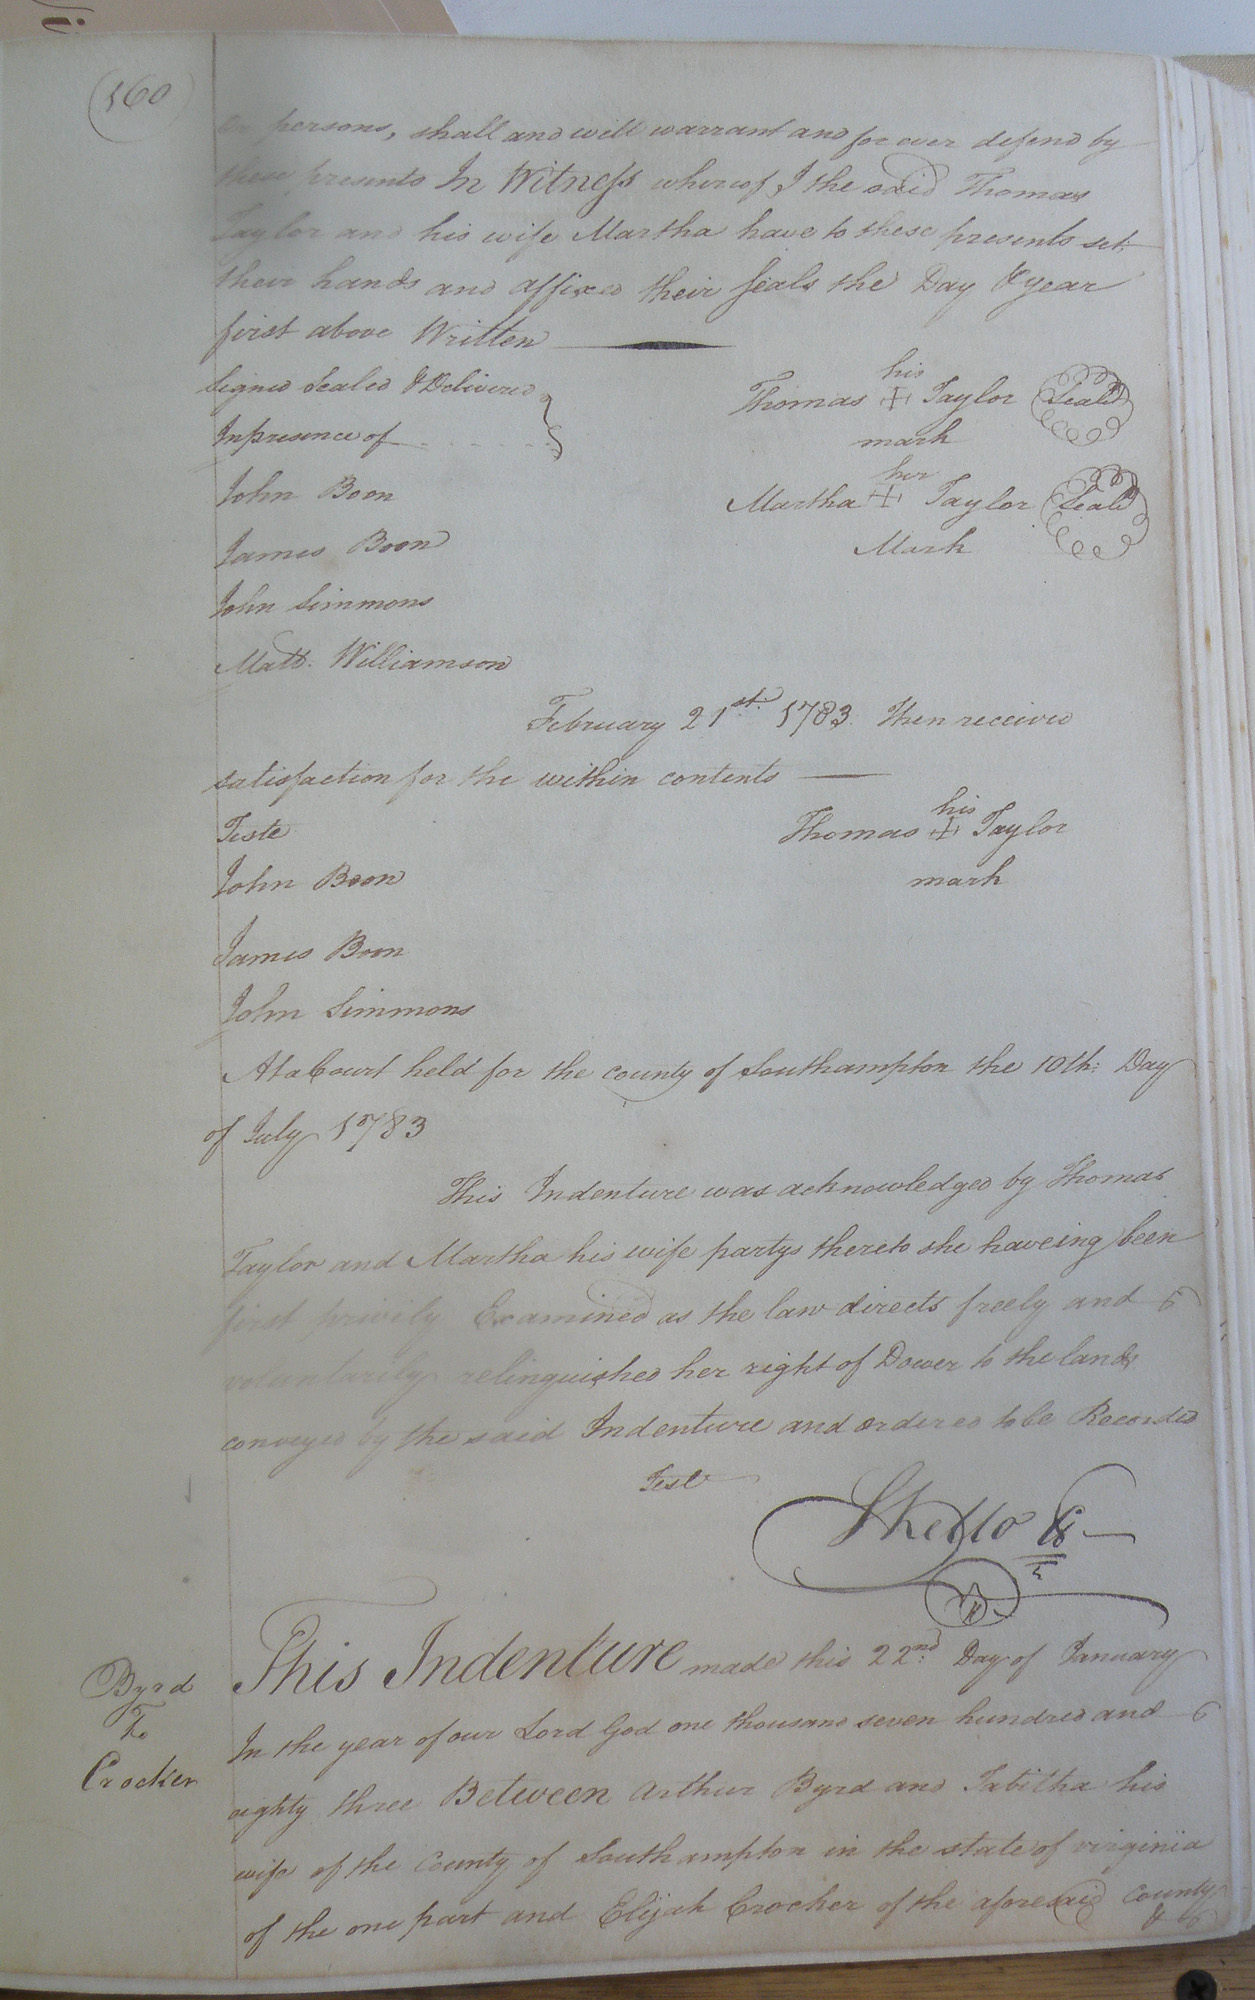 (160)
or persons, shall and will warrant and for ever defend by
these presents In Witness whereof I the said Thomas
Taylor and his wife Martha have to these presents set
their hands and affixed their seals the Day & year
first above Written
Signed Sealed & Delivered
In presence of
his
Thomas + Taylor Seal
mark
John Boon
her
Martha + Taylor Seal
Mark
James Boon
John Simmons
Matt. Williamson
February 21st. 1783. Then received
satisfaction for the within contents
Teste
his
Thomas + Taylor
mark
John Boon
James Boon
John Simmons
At a Court held for the county of Southampton the 10th: Day
of July 1783
This Indenture was acknowledged by Thomas
Taylor and Martha his wife partys thereto she haveing been
first privily Examined as the law directs freely and
voluntarily relinquished her right of Dower to the lands
conveyed by the said Indenture and ordered to be Recorded
Test
Byrd
To
Crocker
This Indenture made this 22nd. Day of January
In the year of our Lord God one thousand seven hundred and
eighty three Between Arthur Byrd and Tabitha his
wife of the County of Southampton in the state of virginia
of the one part and Elijah Crocker of the aforesaid County
&